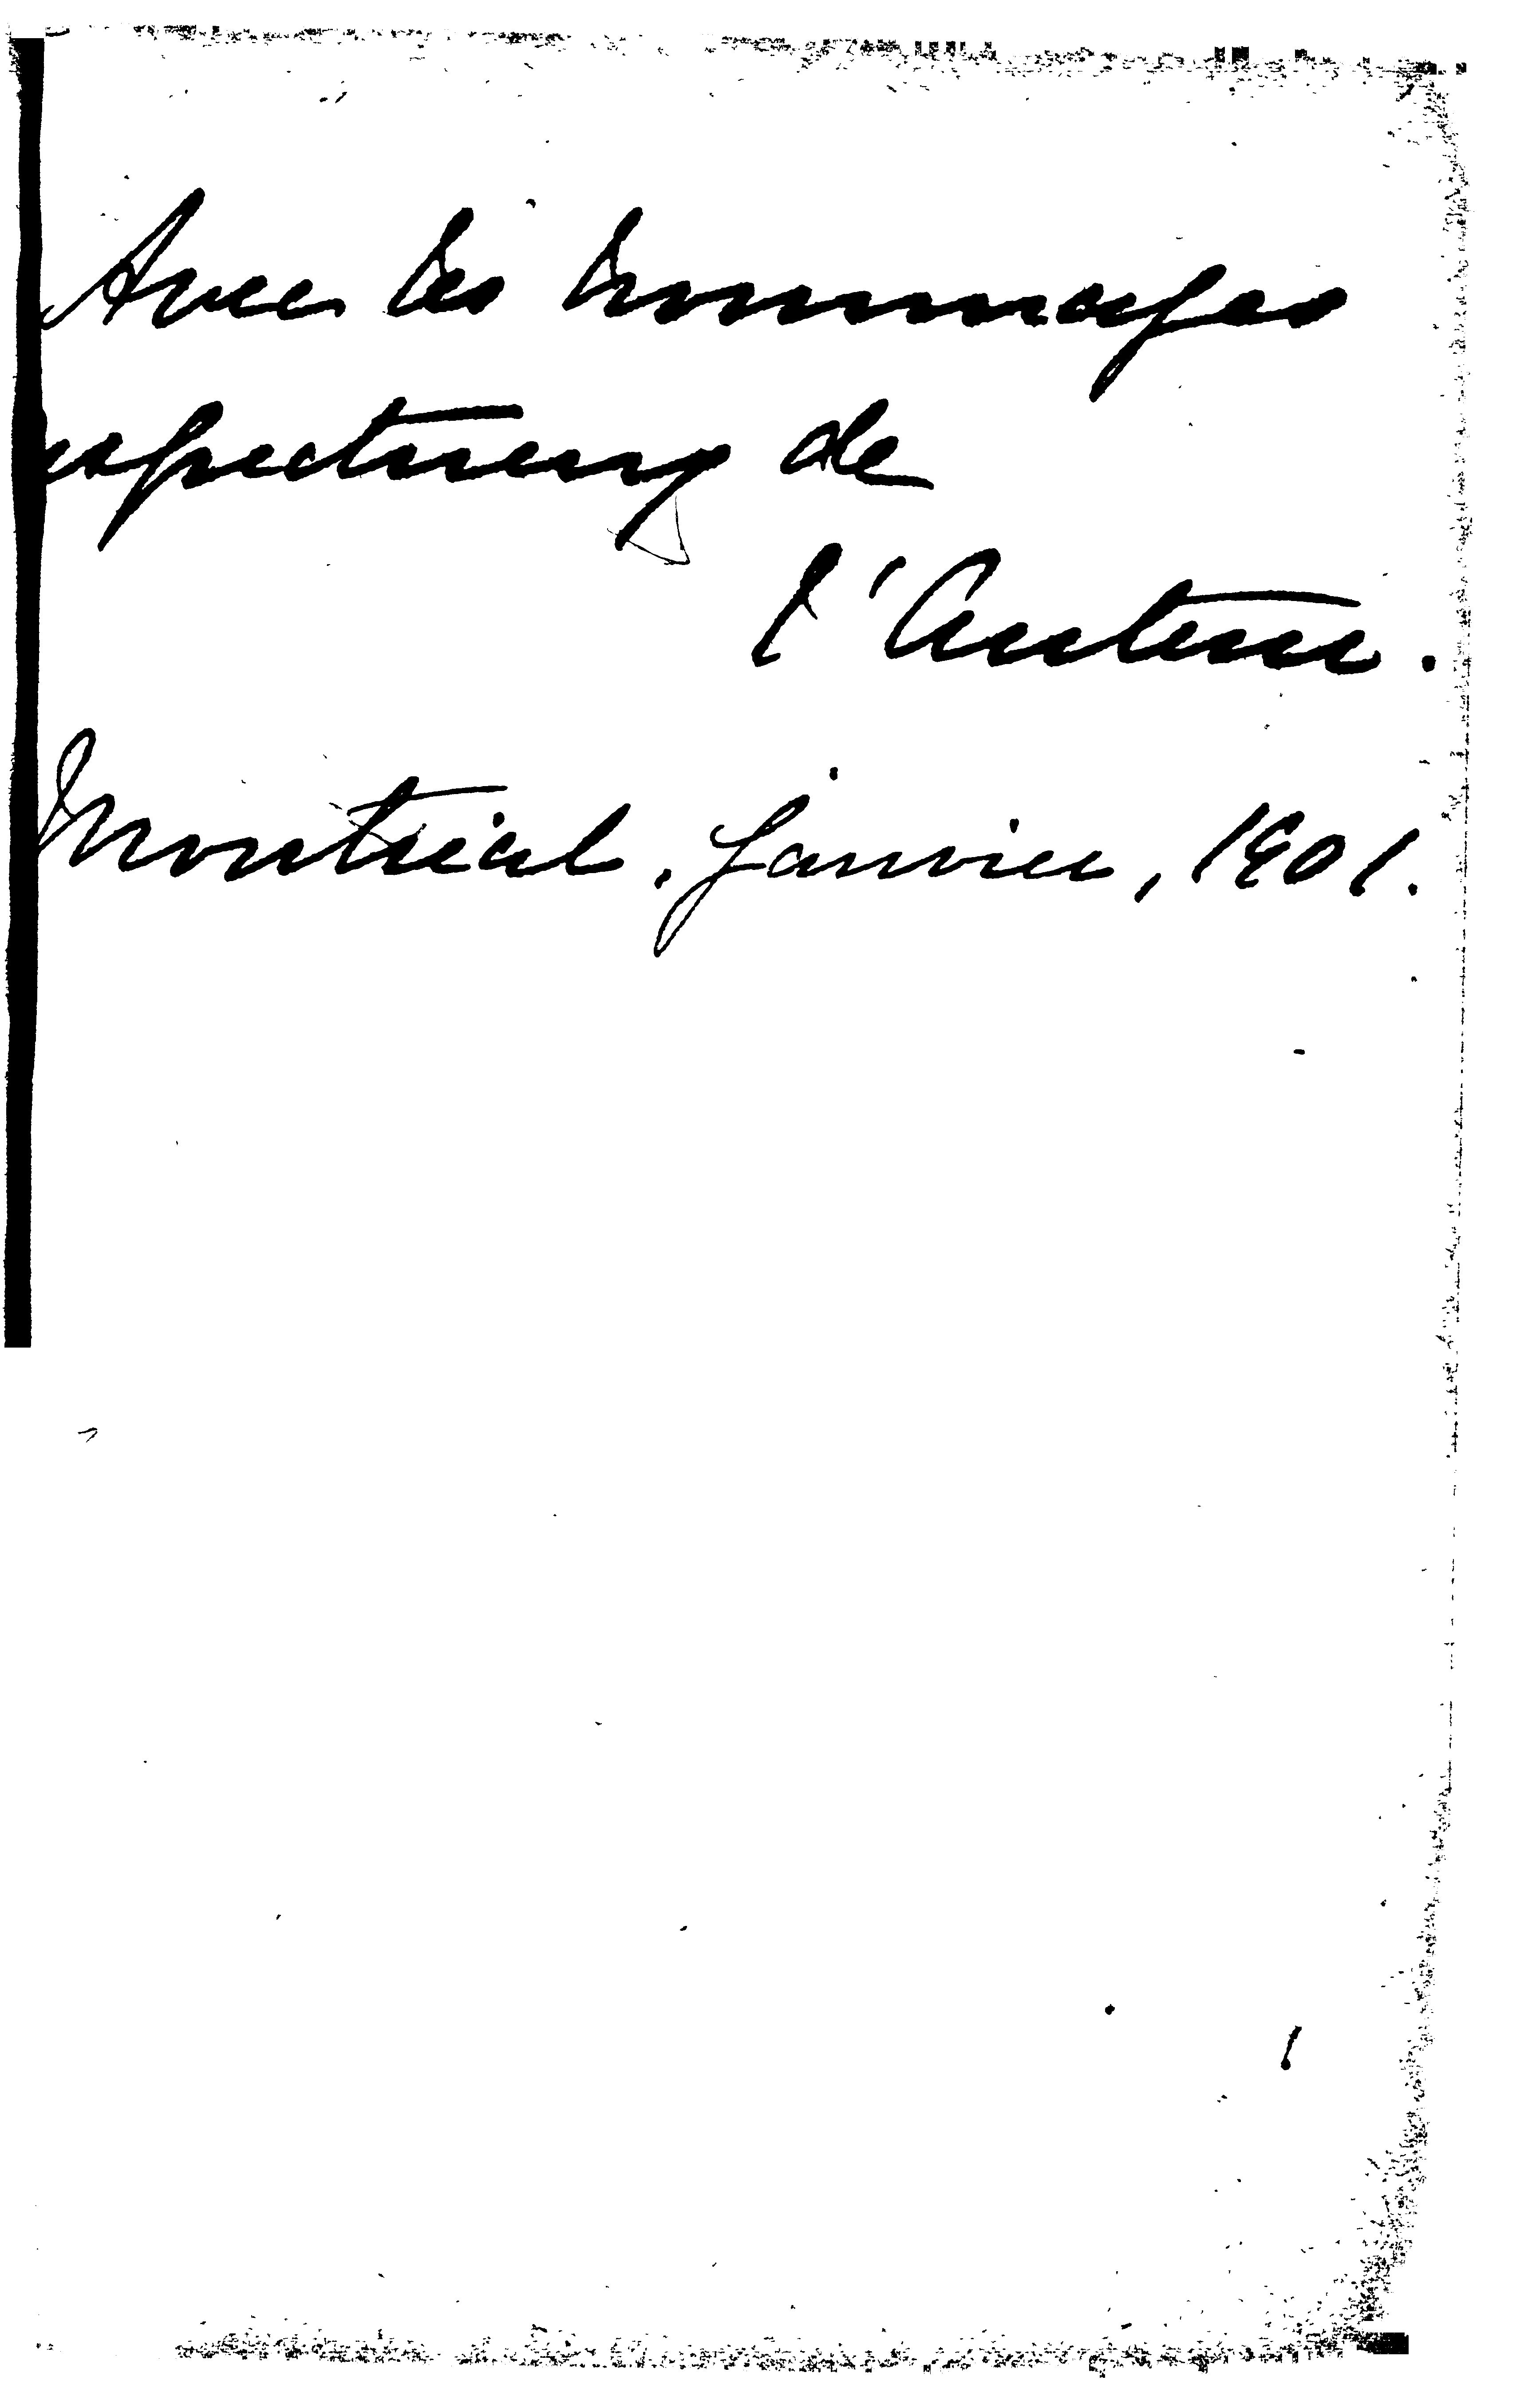 Avec les hommages
respectueux de
l'Auteur.
Montréal, janvier, 1901.